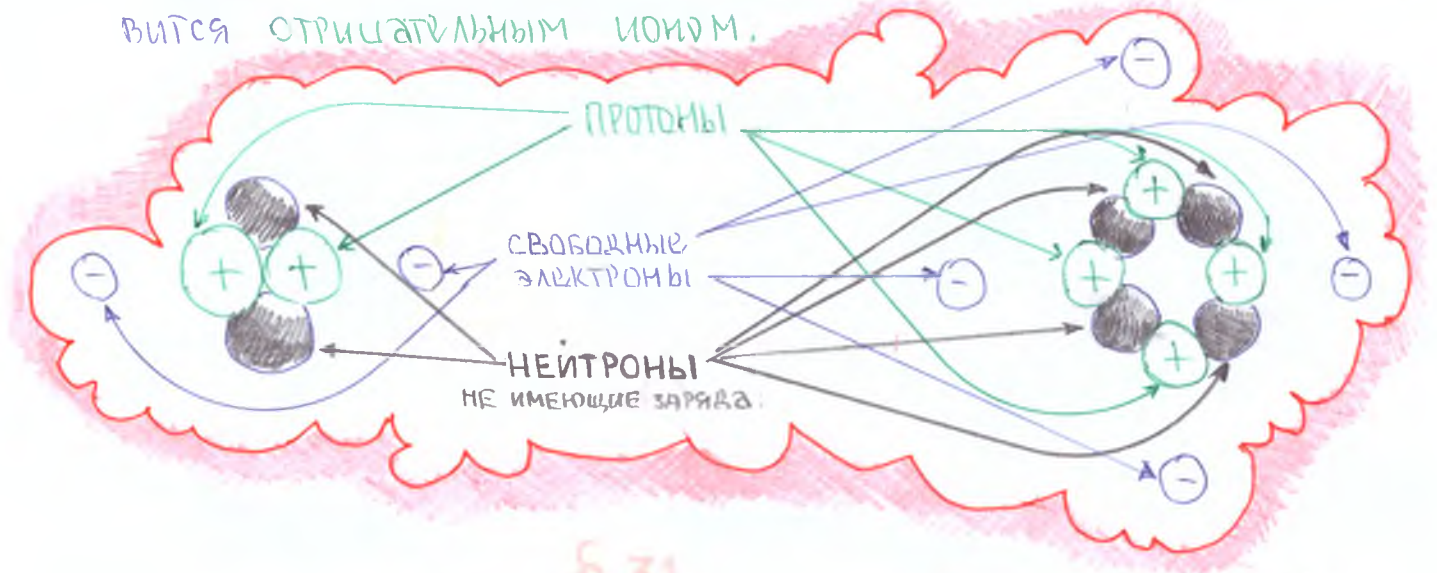 вится отрицательным ионом.
ПРОТОНЫ
СВОБОДНЫЕ
ЭЛЕКТРОНЫ
НЕЙТРОНЫ
НЕ ИМЕЮЩИЕ ЗАРЯДА.